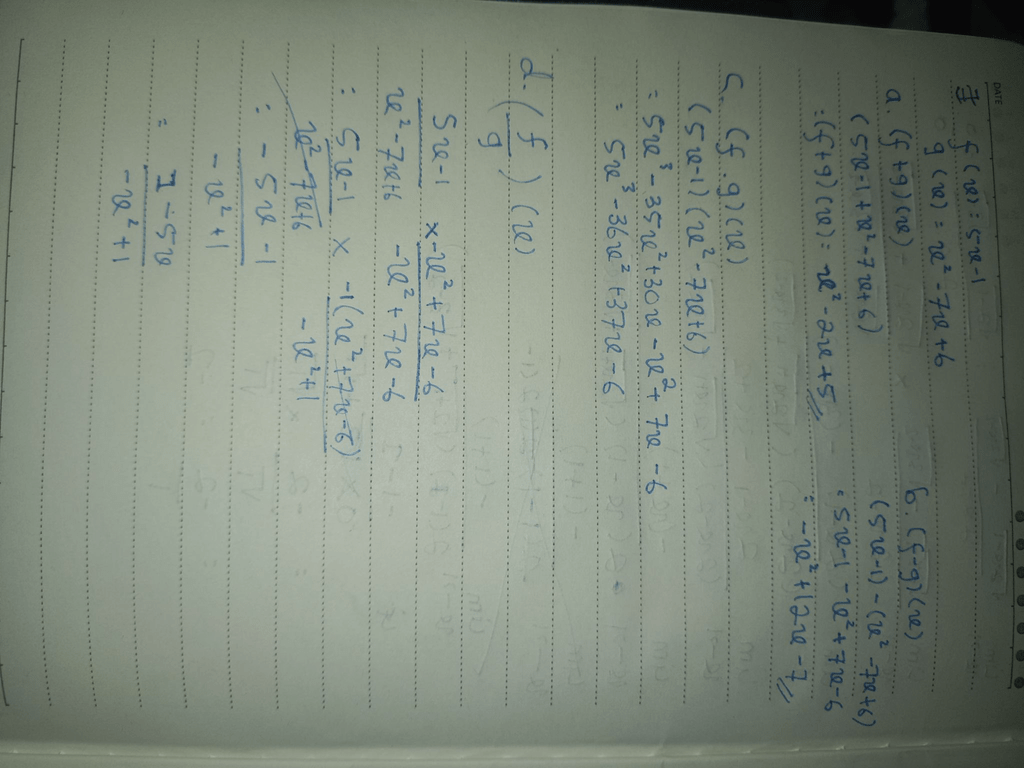 DATE
7 f(x) = 5x-1
g(x) = x² - 7x + 6
a. (f+g)(x)
(5x-1 + x² - 7x + 6)
= (f+g)(x) = x² - 2x + 5 //
b. (f-g)(x)
(5x-1) - (x² - 7x + 6)
= 5x-1 - x² + 7x - 6
= -x² + 12x - 7 //
c. (f.g)(x)
(5x-1)(x² - 7x + 6)
= 5x³ - 35x² + 30x - x² + 7x - 6
= 5x³ - 36x² + 37x - 6
d. (f/g)(x)
5x-1 x -x² + 7x - 6
x² - 7x + 6 -x² + 7x - 6
: 5x-1 x -1(x² + 7x - 6)
x² - 7x + 6 - x² + 1
: - 5x - 1
- x² + 1
= 1 - 5x
- x² + 1